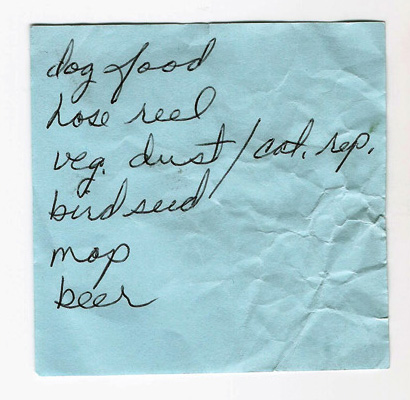 dog food
hose reel
veg. dust / cat. rep.
birdseed
mop
beer